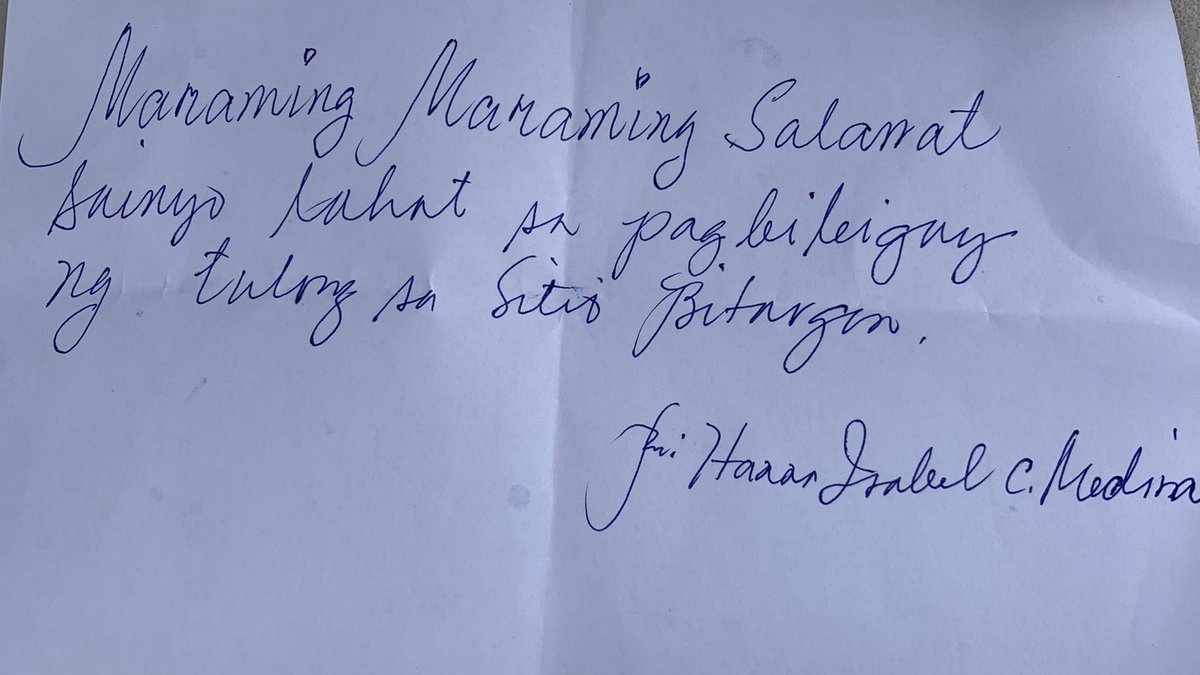 Maraming Maraming Salamat
sainyo lahat sa pagbibigay
ng tulong sa Sitio
Isabel C. Medina